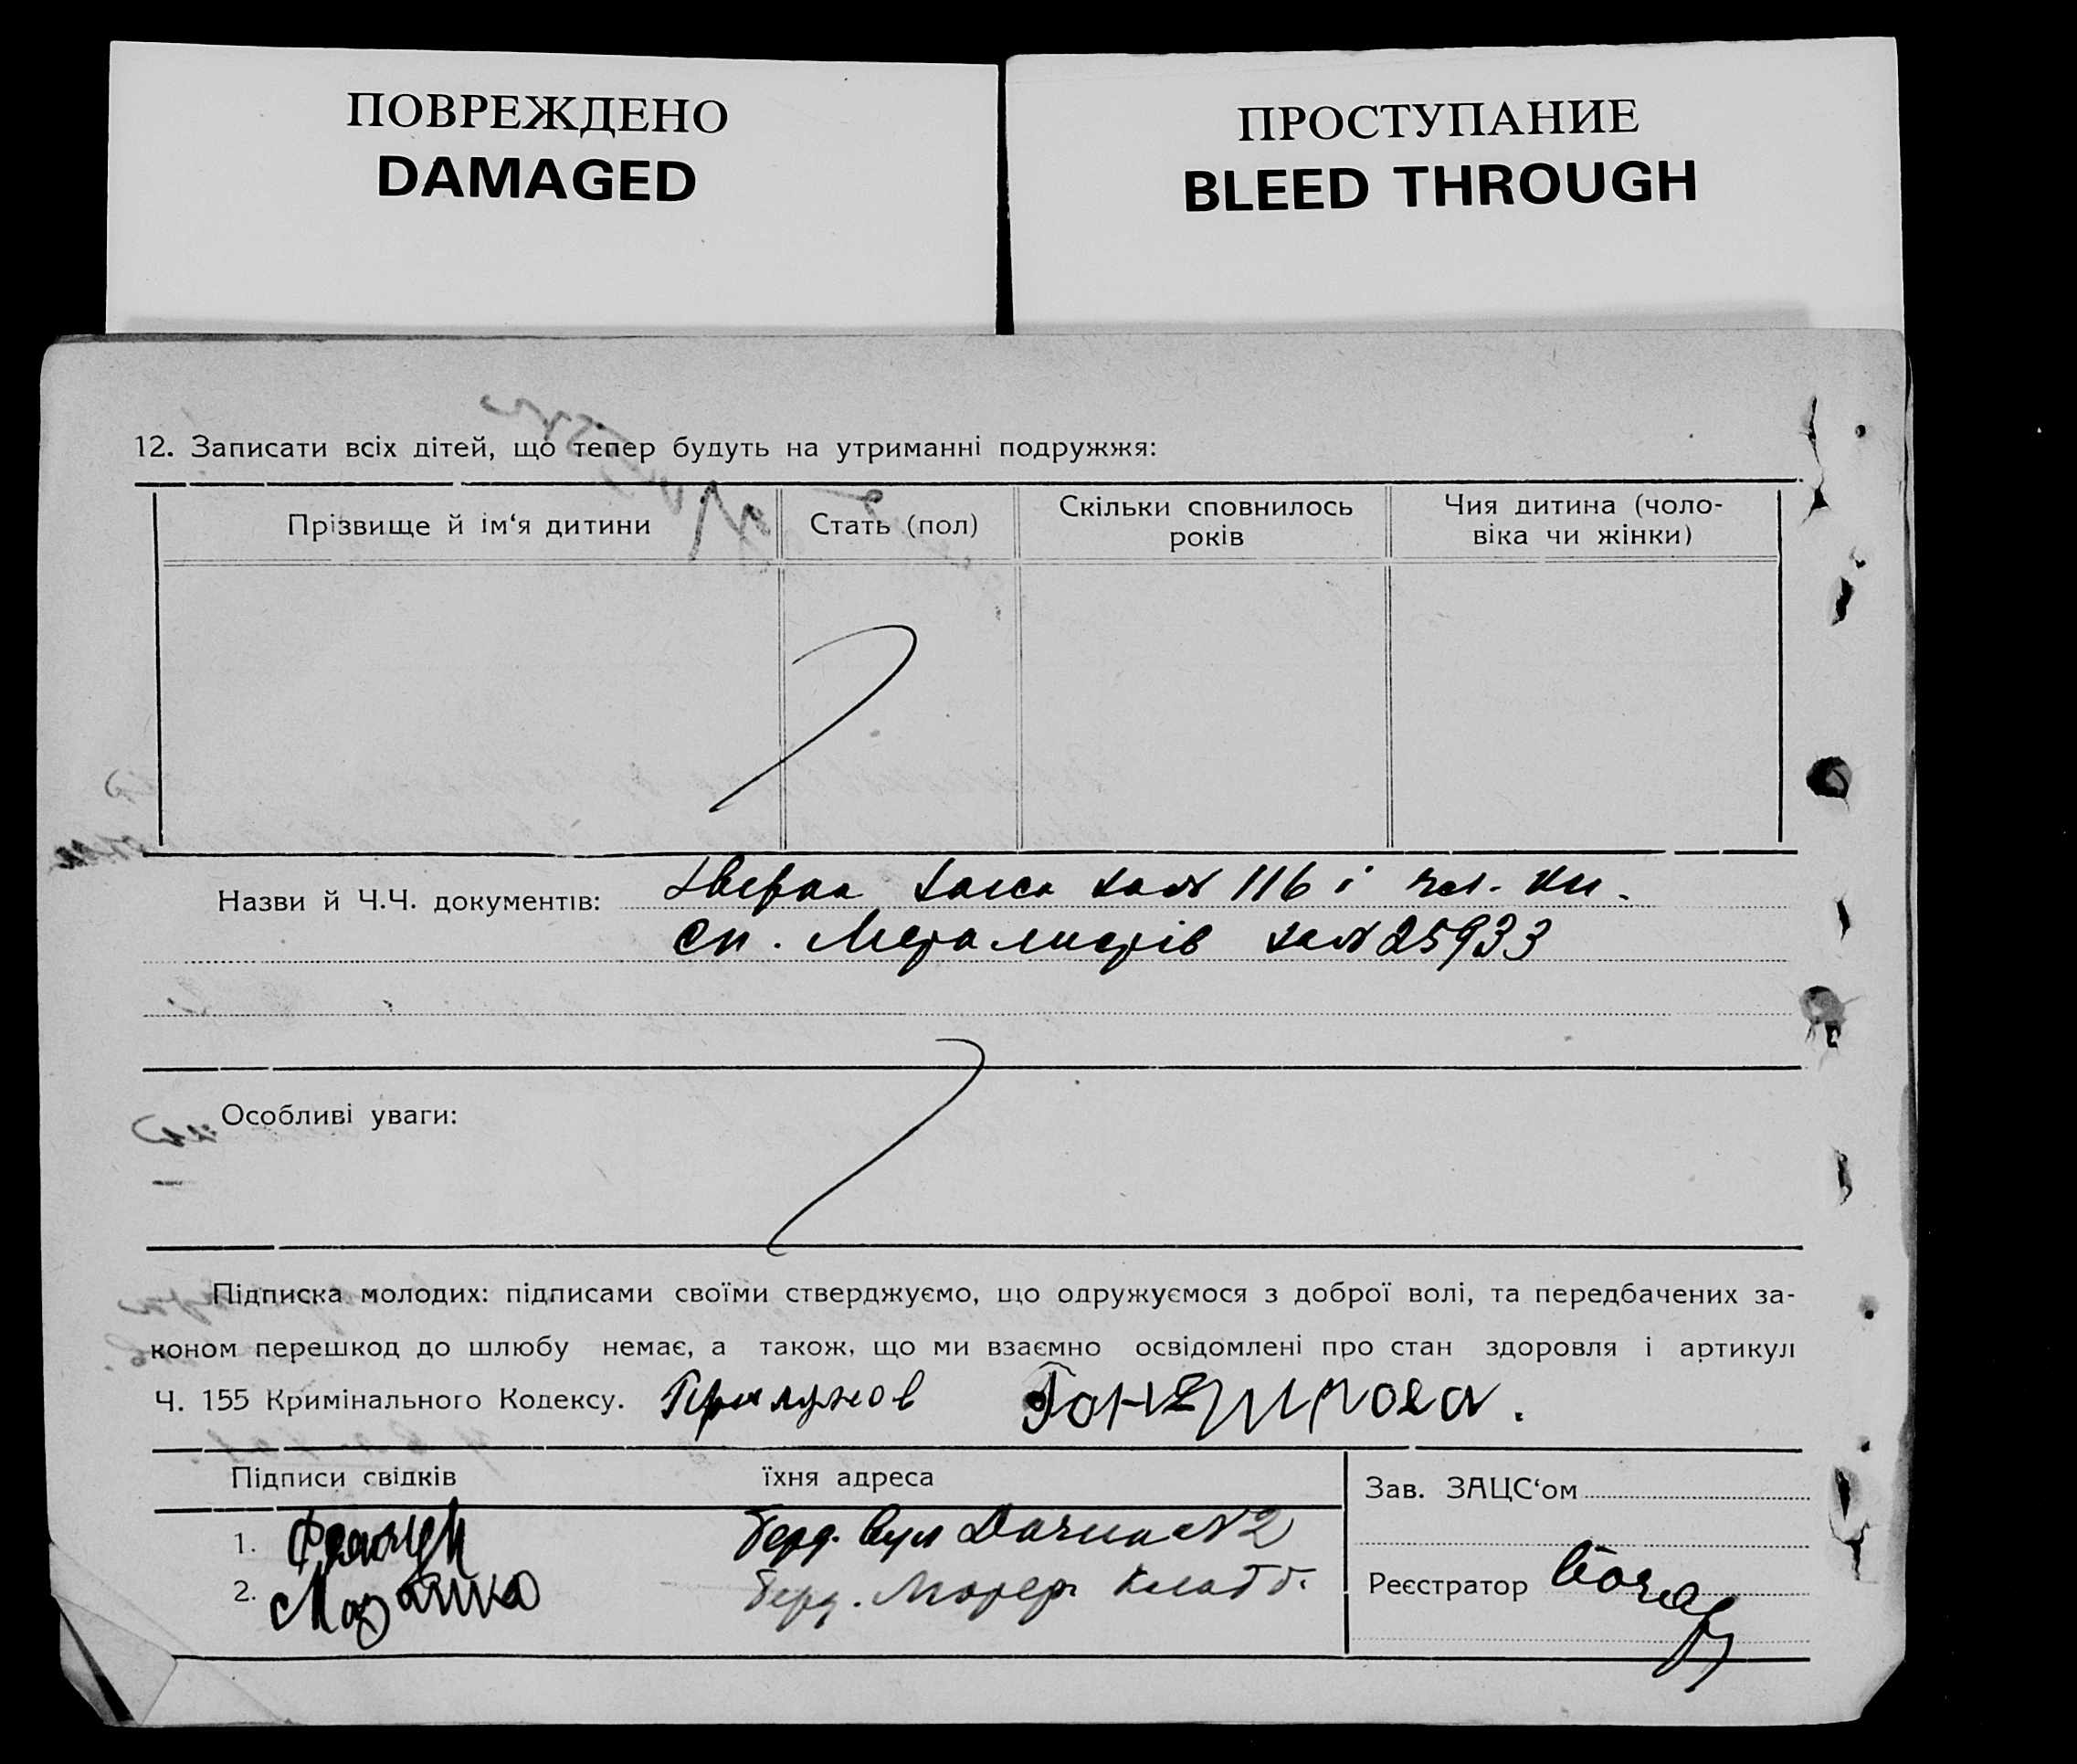 ПОВРЕЖДЕНО
DAMAGED
ПРОСТУПАНИЕ
BLEED THROUGH
12. Записати всіх дітей, що тепер будуть на утриманні подружжя:
Прізвище й ім‘я дитини
Стать (пол)
Скільки сповнилось
років
Чия дитина (чоло-
віка чи жінки)
Назви й Ч.Ч. документів: 116 і чл. кн.
сп. Металистів за № 25933
Особливі уваги:
Підписка молодих: підписами своїми стверджуємо, що одружуємося з доброї волі, та передбачених за-
коном перешкод до шлюбу немає, а також, що ми взаємно освідомлені про стан здоровля і артикул
Ч. 155 Кримінального Кодексу.
Підписи свідків
їхня адреса
Зав. ЗАЦС‘ом
1. Берд. вул Дачна № 2
2. Берд.
Реєстратор